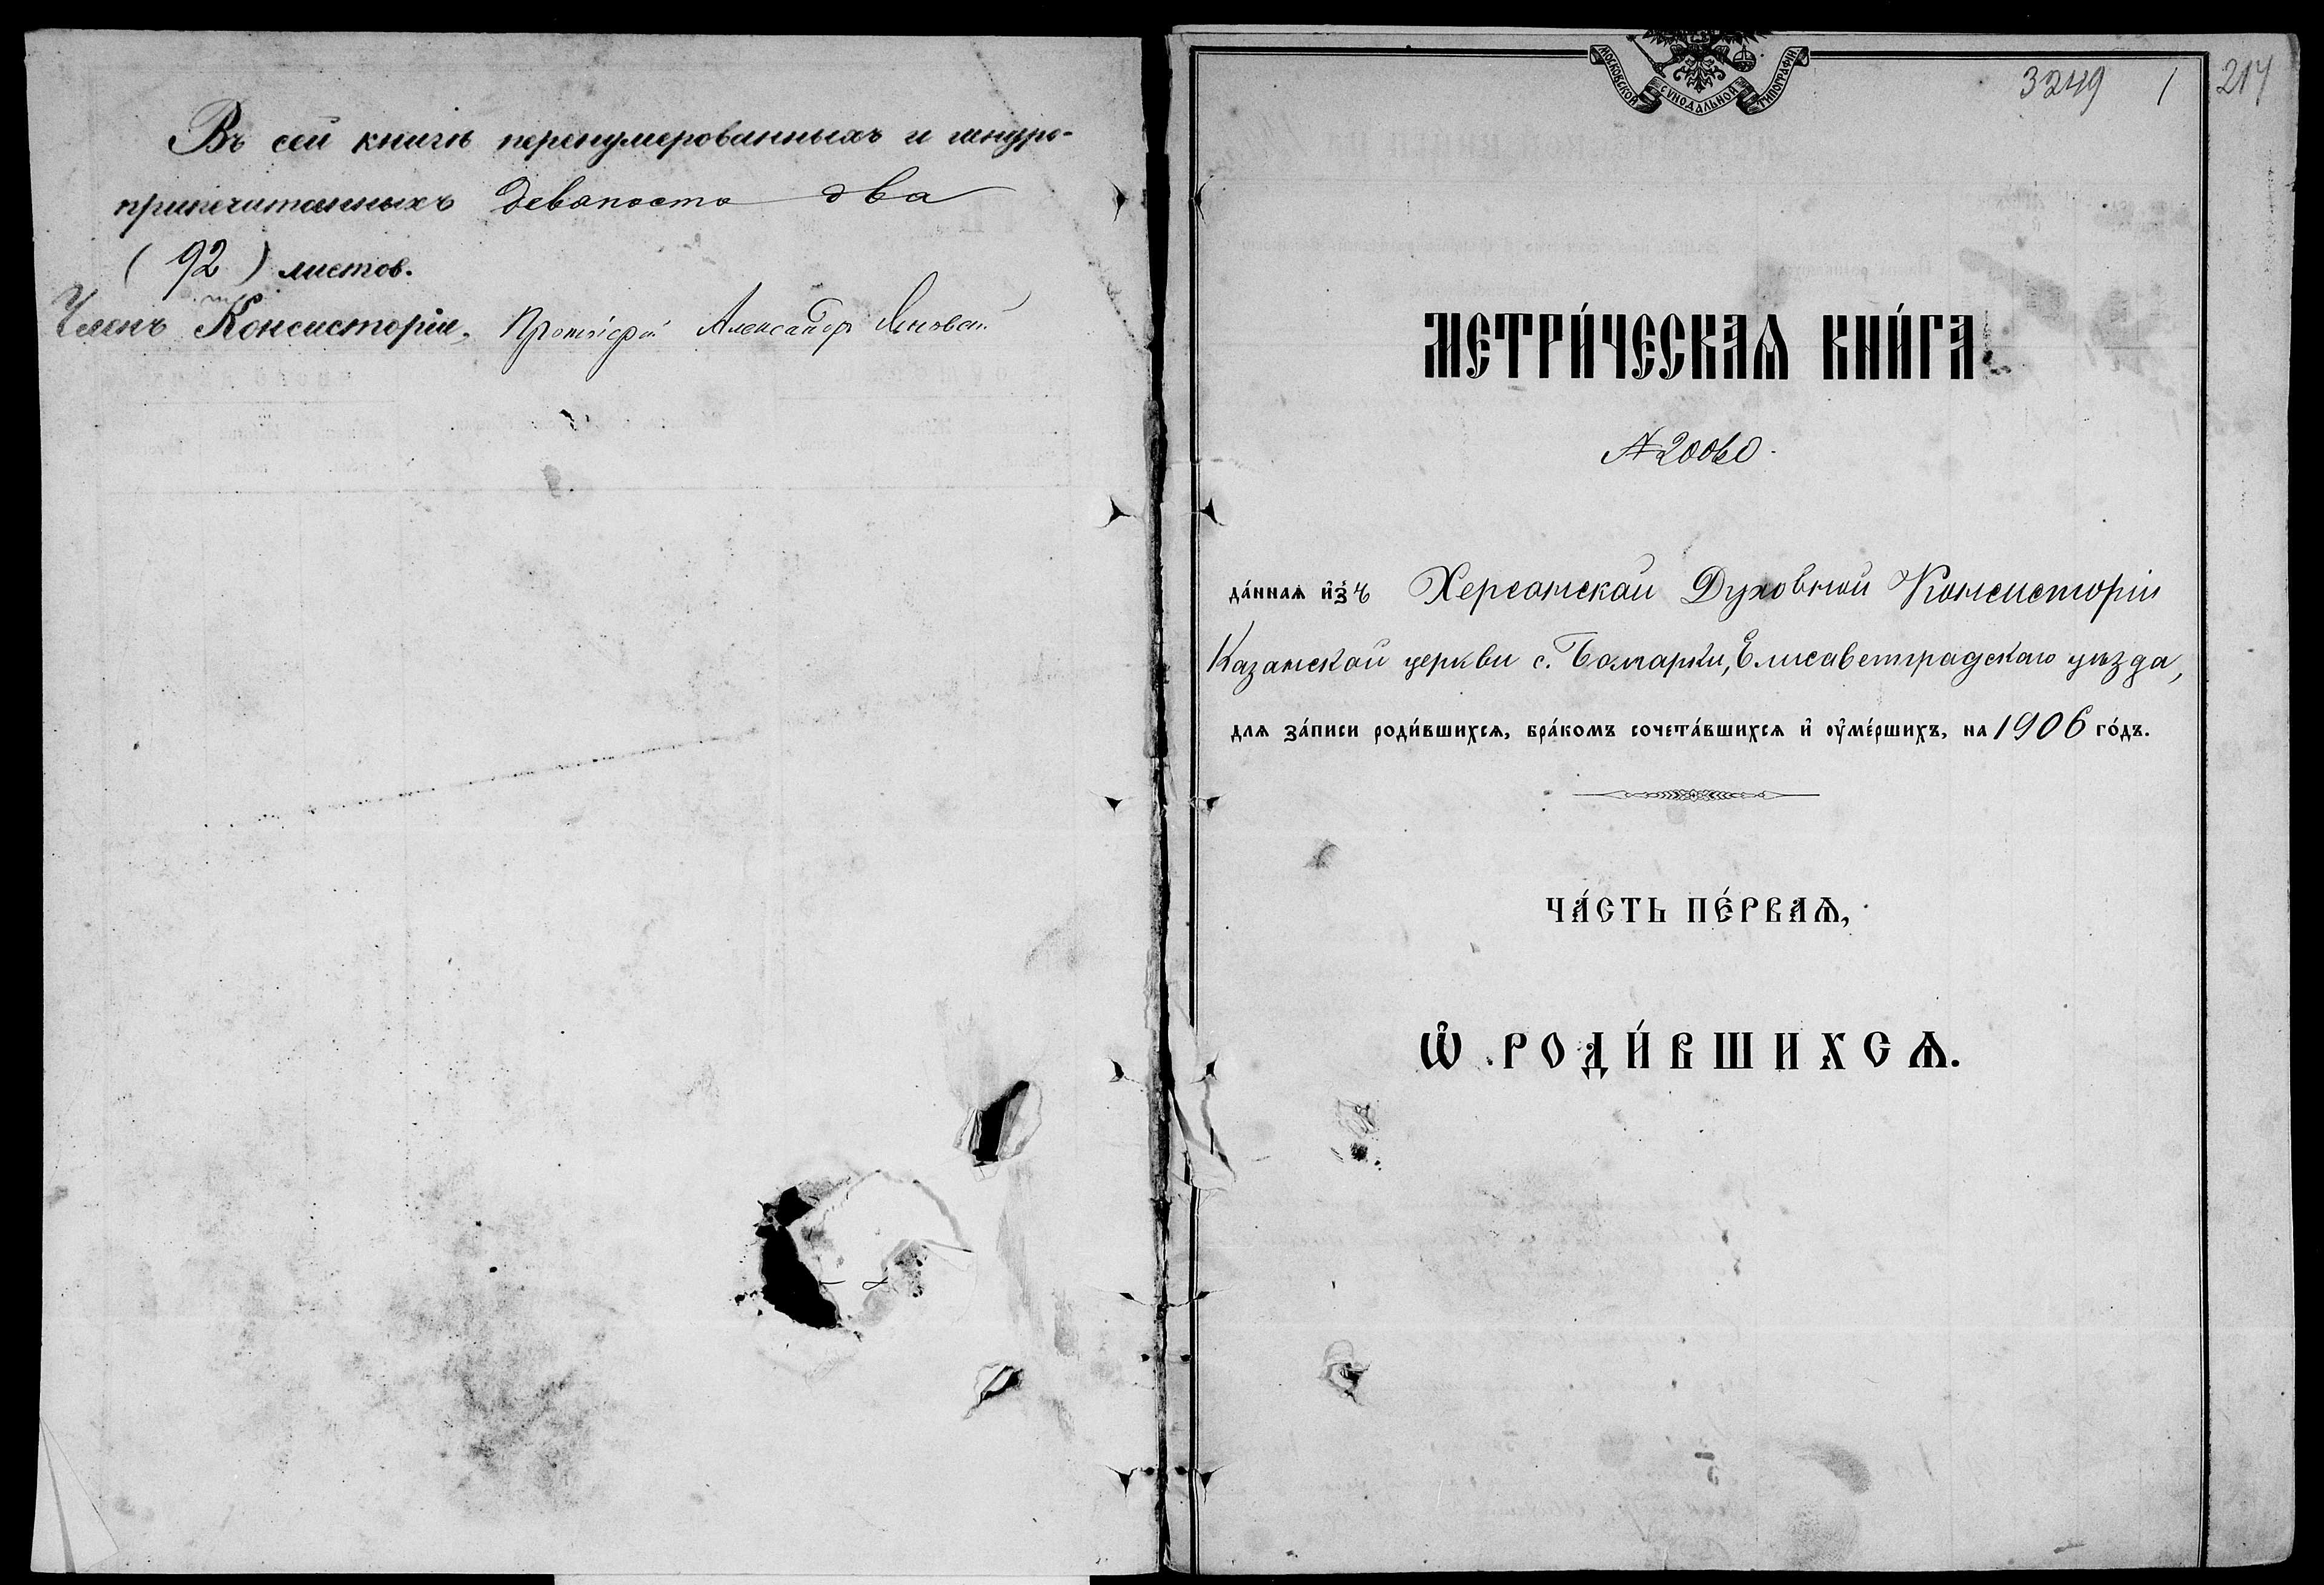 Въ сей книгѣ перенумерованныхъ и шнуро-
припечатанныхъ девяносто два
(92) листов.
Членъ Консисторіи, Протоіерей Александръ
МОСКОВСКОЙ СѴНОДАЛЬНОЙ ТИПОГРАФІИ
3249 1 217
МЕТРИ́ЧЕСКАѦ КНИ́ГА
да́ннаѧ и҆зъ Херсонской Духовной Консисторіи
Казанской церкви с. Болгарки, Елисаветградскаго уѣзда,
для за́писи роди́вшихсѧ, бра́комъ сочета́вшихсѧ и҆ оу҆ме́ршихъ, на 1906 го́дъ.
ЧА́СТЬ ПЕ́РВАѦ,
Ѡ҆ РОДИ́ВШИХСѦ.